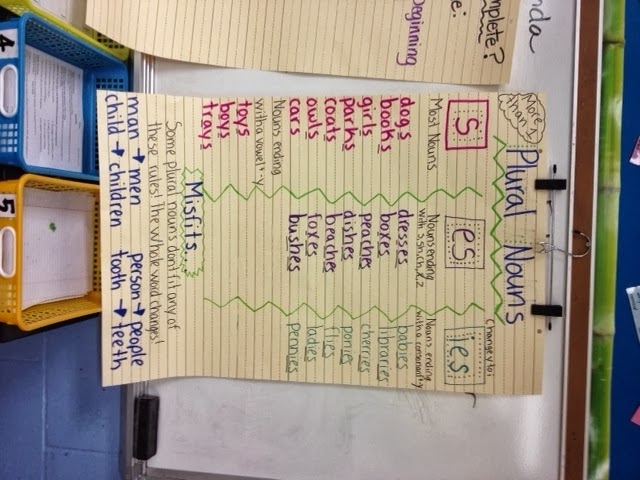 More
than 1
Plural Nouns
s
Most Nouns
dogs
books
girls
parks
coats
owls
cars
Nouns ending
with a vowel + -y
toys
boys
trays
es
Nouns ending
with s, sh, ch, x, z
dresses
boxes
peaches
dishes
beaches
foxes
bushes
Change y to i
ies
Nouns ending
with a consonant + y
babies
libraries
cherries
ponies
flies
ladies
pennies
Misfits...
Some plural nouns don't fit any of
these rules! The whole word changes!
man → men
person → people
child → children
tooth → teeth
mplete?
eginning
nda
4
5